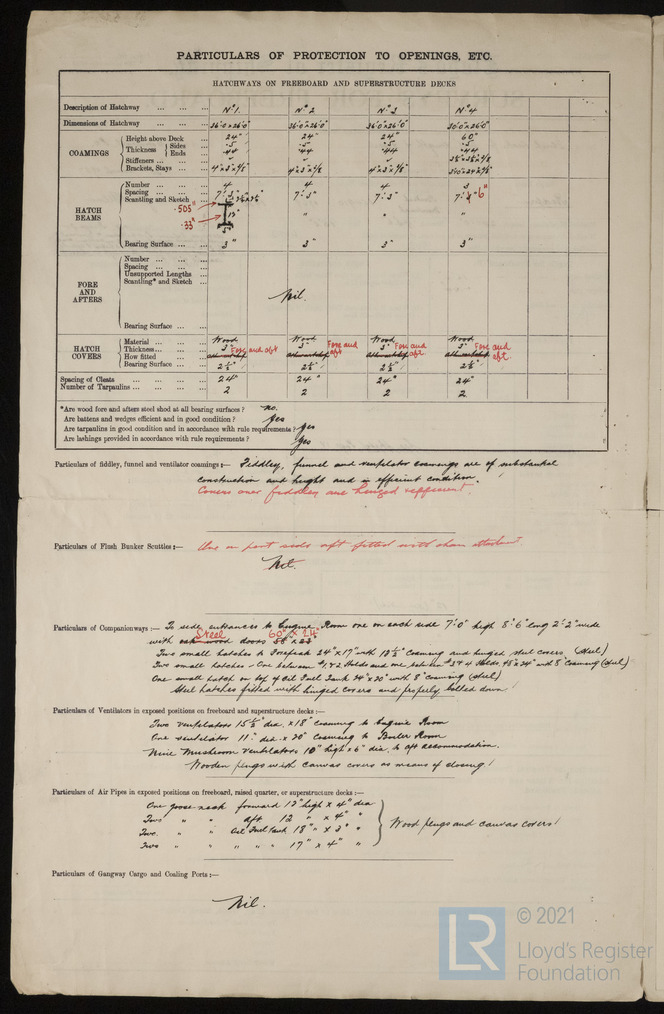 PARTICULARS OF PROTECTION TO OPENINGS, ETC.
HATCHWAYS ON FREEBOARD AND SUPERSTRUCTURE DECKS
Description of Hatchway ... ... ... No 1 No 2 No 3 No 4
Dimensions of Hatchway ... ... ... 36'0"x26'0" 36'0"x26'0" 36'0"x26'0" 30'0"x26'0"
COAMINGS
Height above Deck ... 24" 24" 24" 60"
Thickness { Sides ... .5 .5 .5 .5
Ends ... .44 .44 .44 .44
Stiffeners ... ...
Brackets, Stays ... ...
HATCH BEAMS
Number ... ... ... 4 4 4 3
Spacing ... ... ... 7'3" 7'3" 7'3" 7' 6"
Scantling and Sketch ... " " "
.505"
.33"
Bearing Surface ... ... 3" 3" 3" 3"
FORE AND AFTERS
Number ... ... ...
Spacing ... ... ...
Unsupported Lengths ...
Scantling* and Sketch ...
Nil.
Bearing Surface ... ...
HATCH COVERS
Material ... ... ... Wood Wood Wood Wood
Thickness ... ... ... 3" 3" 3" 3"
How fitted ... ... athwartship Fore and aft athwartship Fore and aft athwartship Fore and aft athwartship Fore and aft
Bearing Surface ... ... 2½" 2½" 2½" 2½"
Spacing of Cleats ... ... ... 24" 24" 24" 24"
Number of Tarpaulins ... ... ... 2 2 2 2
*Are wood fore and afters steel shod at all bearing surfaces? no.
Are battens and wedges efficient and in good condition? Yes
Are tarpaulins in good condition and in accordance with rule requirements? Yes
Are lashings provided in accordance with rule requirements? Yes
Particulars of fiddley, funnel and ventilator coamings:— Fiddley, funnel and ventilator coamings are of substantial
construction and height and in efficient condition.
Covers over fiddley are hinged & efficient.
Particulars of Flush Bunker Scuttles:— One on port side aft fitted with chain attached.
Nil.
Particulars of Companionways:— To side entrances to Engine Room one on each side 7'0" high 8'6" long 2'2" wide
with oak wood Steel doors 60" x 24"
Two small hatches to Forepeak 24"x17" with 18½" coaming and hinged steel covers. (steel)
Two small hatches - One between #1 & 2 Holds and one between #3 & 4 Holds. 45"x24" with 8" coaming (steel)
One small hatch on top of Oil Fuel Tank 24"x20" with 8" coaming (steel)
Steel hatches fitted with hinged covers and properly bolted down!
Particulars of Ventilators in exposed positions on freeboard and superstructure decks:—
Two ventilators 15½" dia. x 18" coaming to Engine Room
One ventilator 11" dia. x 20" coaming to Boiler Room
Nine Mushroom Ventilators 10" high x 6" dia. to aft accommodation.
Wooden plugs with canvas covers as means of closing!
Particulars of Air Pipes in exposed positions on freeboard, raised quarter, or superstructure decks:—
One goose-neck forward 12" high x 4" dia
Two " " aft 12 " x 4" "
Two " " Oil Fuel Tank 18" " x 3" "
Two " " " " " 17" x 4" "
Wood plugs and canvas covers!
Particulars of Gangway Cargo and Coaling Ports:—
Nil.
LR
© 2021
Lloyd's Register
Foundation